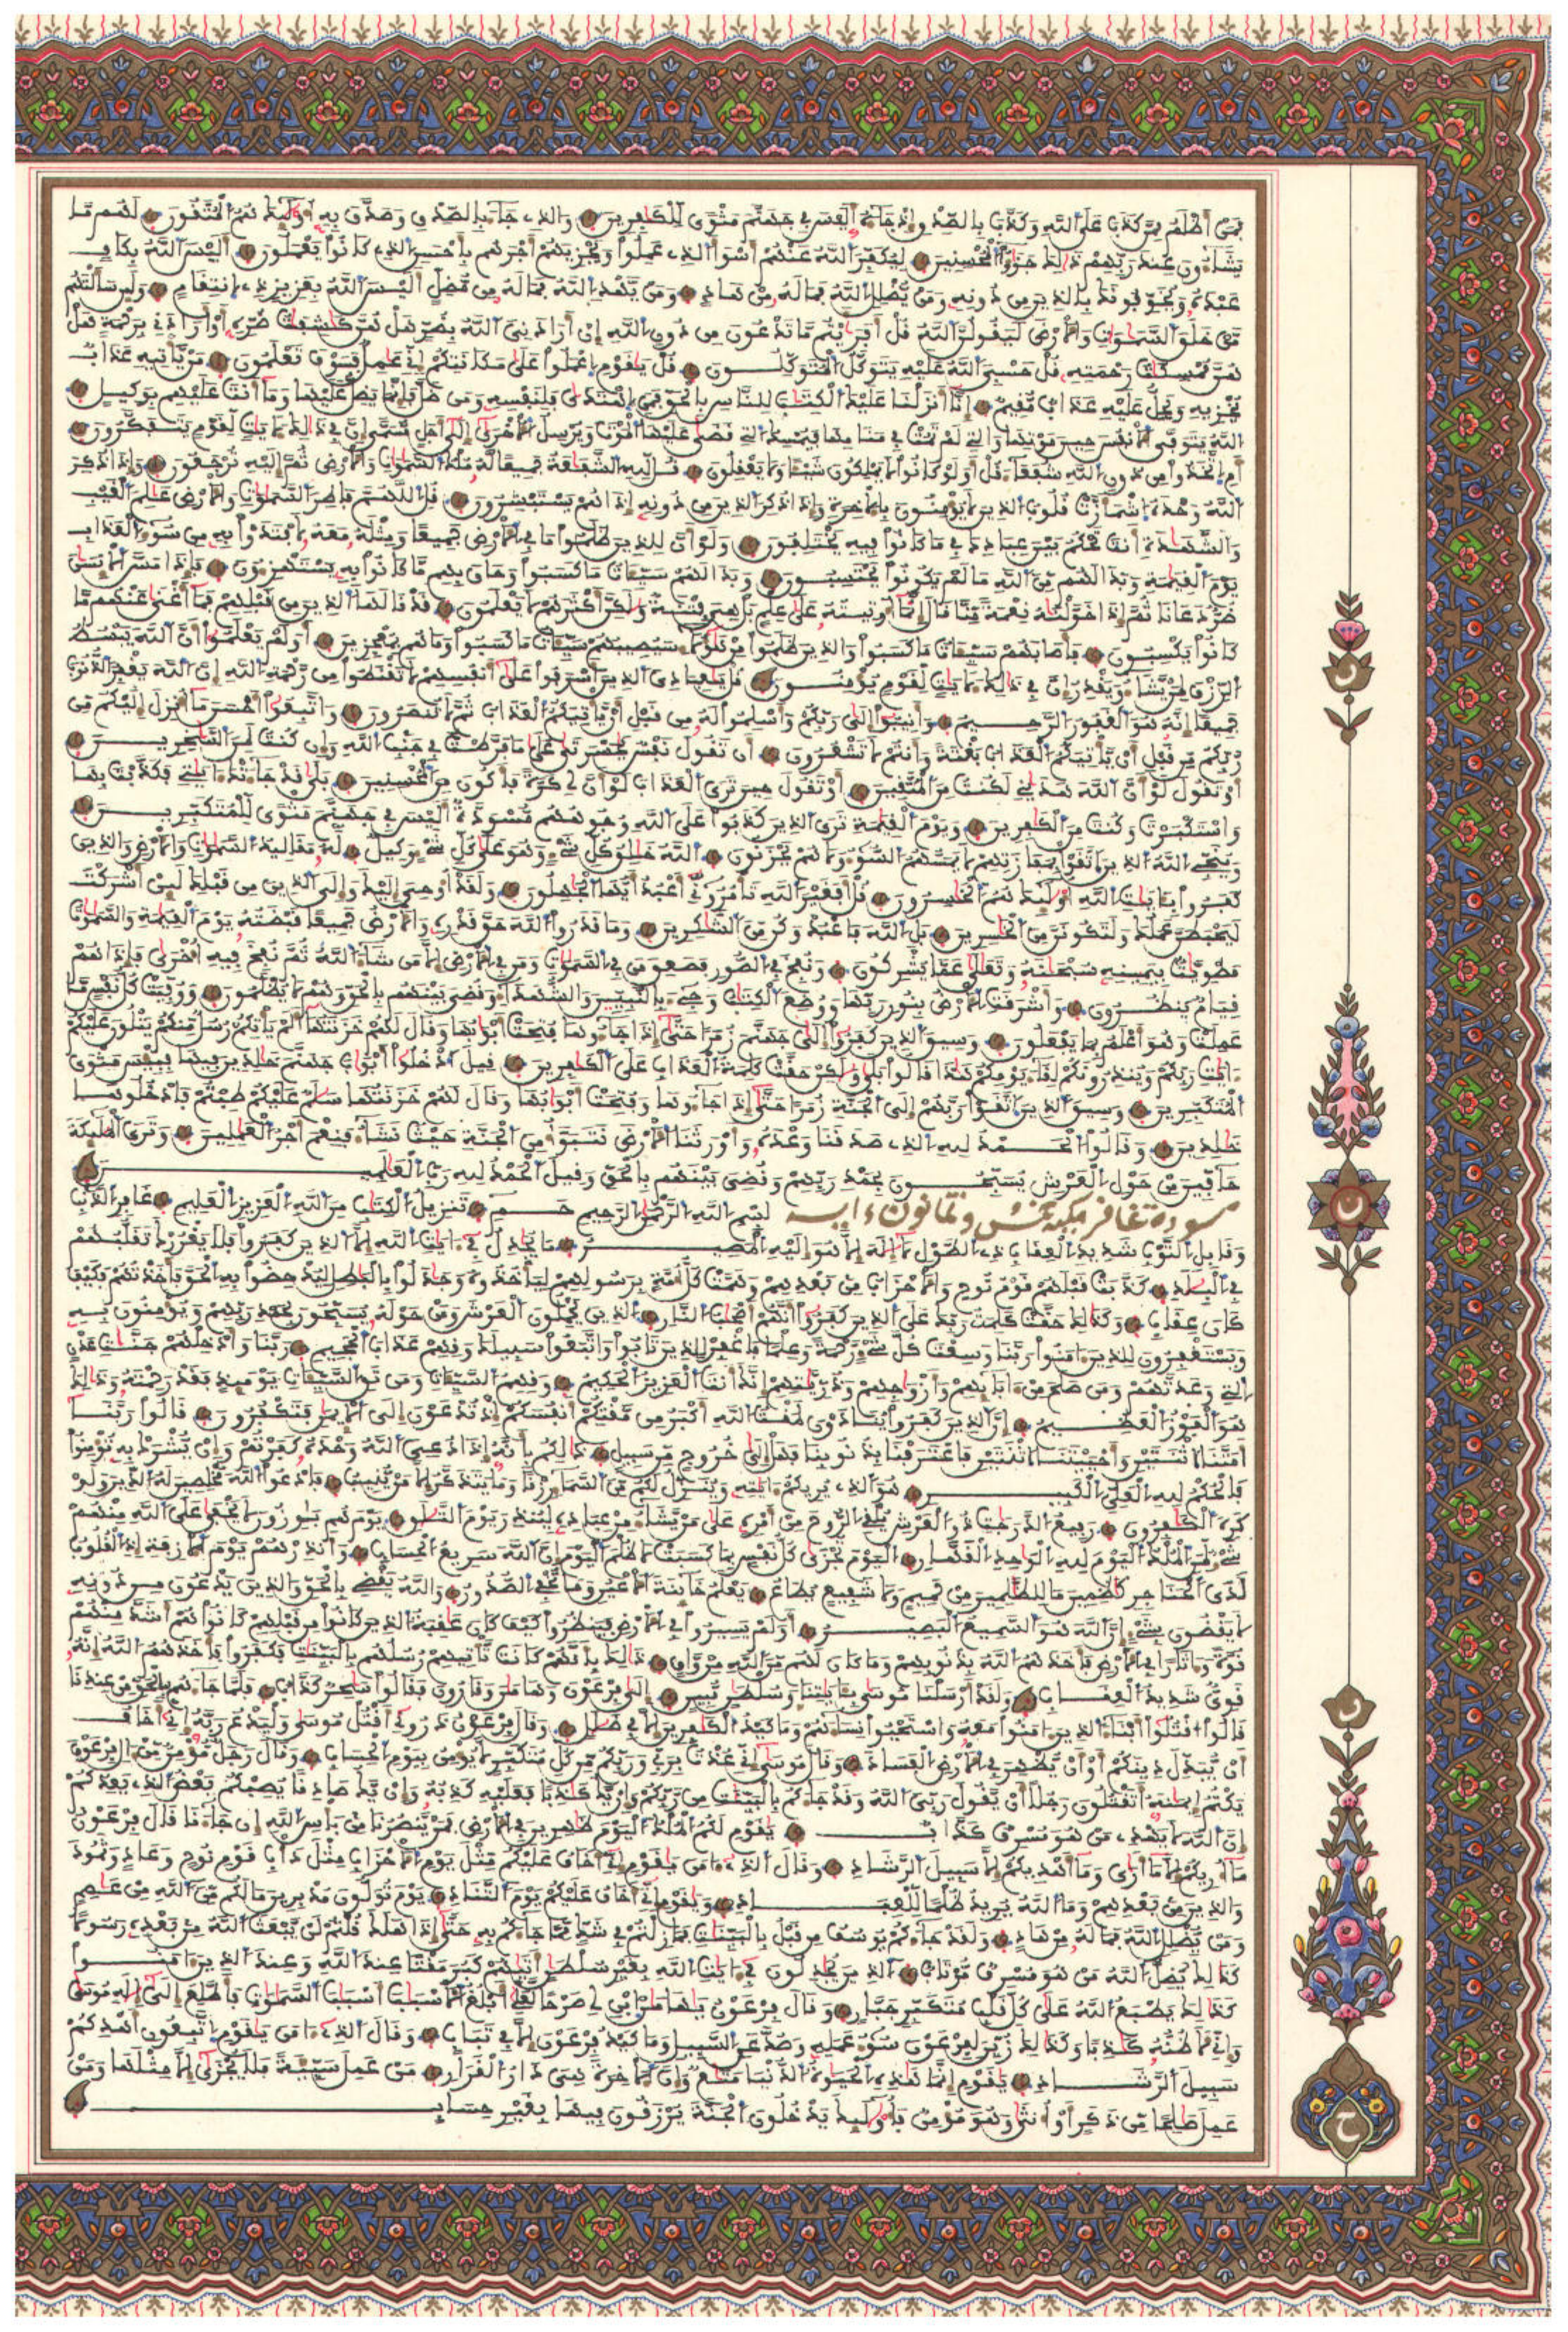 فمن أظلم ممن كذب على الله وكذب بالصدق إذ جاءه أليس في جهنم مثوى للكافرين والذي جاء بالصدق وصدق به أولئك هم المتقون لهم ما
يشاءون عند ربهم ذلك جزاء المحسنين ليكفر الله عنهم أسوأ الذي عملوا ويجزيهم أجرهم بأحسن الذي كانوا يعملون أليس الله بكاف
عبده ويخوفونك بالذين من دونه ومن يضلل الله فما له من هاد ومن يهد الله فما له من مضل أليس الله بعزيز ذي انتقام ولئن سألتهم
من خلق السموات والأرض ليقولن الله قل أفرأيتم ما تدعون من دون الله إن أرادني الله بضر هل هن كاشفات ضره أو أرادني برحمة هل
هن ممسكات رحمته قل حسبي الله عليه يتوكل المتوكلون قل يا قوم اعملوا على مكانتكم إني عامل فسوف تعلمون من يأتيه عذاب
يخزيه ويحل عليه عذاب مقيم إنا أنزلنا عليك الكتاب للناس بالحق فمن اهتدى فلنفسه ومن ضل فإنما يضل عليها وما أنت عليهم بوكيل
الله يتوفى الأنفس حين موتها والتي لم تمت في منامها فيمسك التي قضى عليها الموت ويرسل الأخرى إلى أجل مسمى إن في ذلك لآيات لقوم يتفكرون
أم اتخذوا من دون الله شفعاء قل أولو كانوا لا يملكون شيئا ولا يعقلون قل لله الشفاعة جميعا له ملك السموات والأرض ثم إليه ترجعون وإذا ذكر
الله وحده اشمأزت قلوب الذين لا يؤمنون بالآخرة وإذا ذكر الذين من دونه إذا هم يستبشرون قل اللهم فاطر السموات والأرض عالم الغيب
والشهادة أنت تحكم بين عبادك في ما كانوا فيه يختلفون ولو أن للذين ظلموا ما في الأرض جميعا ومثله معه لافتدوا به من سوء العذاب
يوم القيمة وبدا لهم من الله ما لم يكونوا يحتسبون وبدا لهم سيئات ما كسبوا وحاق بهم ما كانوا به يستهزءون فإذا مس الإنسان
ضر دعانا ثم إذا خولناه نعمة منا قال إنما أوتيته على علم بل هي فتنة ولكن أكثرهم لا يعلمون قد قالها الذين من قبلهم فما أغنى عنهم ما
كانوا يكسبون فأصابهم سيئات ما كسبوا والذين ظلموا من هؤلاء سيصيبهم سيئات ما كسبوا وما هم بمعجزين أولم يعلموا أن الله يبسط
الرزق لمن يشاء ويقدر إن في ذلك لآيات لقوم يؤمنون قل يا عبادي الذين أسرفوا على أنفسهم لا تقنطوا من رحمة الله إن الله يغفر الذنوب
جميعا إنه هو الغفور الرحيم وأنيبوا إلى ربكم وأسلموا له من قبل أن يأتيكم العذاب ثم لا تنصرون واتبعوا أحسن ما أنزل إليكم من
ربكم من قبل أن يأتيكم العذاب بغتة وأنتم لا تشعرون أن تقول نفس يا حسرتى على ما فرطت في جنب الله وإن كنت لمن الساخرين
أو تقول لو أن الله هداني لكنت من المتقين أو تقول حين ترى العذاب لو أن لي كرة فأكون من المحسنين بلى قد جاءتك آياتي فكذبت بها
واستكبرت وكنت من الكافرين ويوم القيمة ترى الذين كذبوا على الله وجوههم مسودة أليس في جهنم مثوى للمتكبرين
وينجي الله الذين اتقوا بمفازتهم لا يمسهم السوء ولا هم يحزنون الله خالق كل شيء وهو على كل شيء وكيل له مقاليد السموات والأرض والذين
كفروا بآيات الله أولئك هم الخاسرون قل أفغير الله تأمروني أعبد أيها الجاهلون ولقد أوحي إليك وإلى الذين من قبلك لئن أشركت
ليحبطن عملك ولتكونن من الخاسرين بل الله فاعبد وكن من الشاكرين وما قدروا الله حق قدره والأرض جميعا قبضته يوم القيمة والسموات
مطويات بيمينه سبحانه وتعالى عما يشركون ونفخ في الصور فصعق من في السموات ومن في الأرض إلا من شاء الله ثم نفخ فيه أخرى فإذا هم
قيام ينظرون وأشرقت الأرض بنور ربها ووضع الكتاب وجيء بالنبيين والشهداء وقضي بينهم بالحق وهم لا يظلمون ووفيت كل نفس ما
عملت وهو أعلم بما يفعلون وسيق الذين كفروا إلى جهنم زمرا حتى إذا جاءوها فتحت أبوابها وقال لهم خزنتها ألم يأتكم رسل منكم يتلون عليكم
آيات ربكم وينذرونكم لقاء يومكم هذا قالوا بلى ولكن حقت كلمة العذاب على الكافرين قيل ادخلوا أبواب جهنم خالدين فيها فبئس مثوى
المتكبرين وسيق الذين اتقوا ربهم إلى الجنة زمرا حتى إذا جاءوها وفتحت أبوابها وقال لهم خزنتها سلام عليكم طبتم فادخلوها
خالدين وقالوا الحمد لله الذي صدقنا وعده وأورثنا الأرض نتبوأ من الجنة حيث نشاء فنعم أجر العاملين وترى الملائكة
حافين من حول العرش يسبحون بحمد ربهم وقضي بينهم بالحق وقيل الحمد لله رب العالمين
سورة غافر مكية خمس وثمانون ءاية بسم الله الرحمن الرحيم حم تنزيل الكتاب من الله العزيز العليم غافر الذنب
وقابل التوب شديد العقاب ذي الطول لا إله إلا هو إليه المصير ما يجادل في آيات الله إلا الذين كفروا فلا يغررك تقلبهم
في البلاد كذبت قبلهم قوم نوح والأحزاب من بعدهم وهمت كل أمة برسولهم ليأخذوه وجادلوا بالباطل ليدحضوا به الحق فأخذتهم فكيف
كان عقاب وكذلك حقت كلمت ربك على الذين كفروا أنهم أصحاب النار الذين يحملون العرش ومن حوله يسبحون بحمد ربهم ويؤمنون به
ويستغفرون للذين آمنوا ربنا وسعت كل شيء رحمة وعلما فاغفر للذين تابوا واتبعوا سبيلك وقهم عذاب الجحيم ربنا وأدخلهم جنات عدن
التي وعدتهم ومن صلح من آبائهم وأزواجهم وذرياتهم إنك أنت العزيز الحكيم وقهم السيئات ومن تق السيئات يومئذ فقد رحمته وذلك
هو الفوز العظيم إن الذين كفروا ينادون لمقت الله أكبر من مقتكم أنفسكم إذ تدعون إلى الإيمان فتكفرون قالوا ربنا
أمتنا اثنتين وأحييتنا اثنتين فاعترفنا بذنوبنا فهل إلى خروج من سبيل ذلكم بأنه إذا دعي الله وحده كفرتم وإن يشرك به تؤمنوا
فالحكم لله العلي الكبير هو الذي يريكم آياته وينزل لكم من السماء رزقا وما يتذكر إلا من ينيب فادعوا الله مخلصين له الدين ولو
كره الكافرون رفيع الدرجات ذو العرش يلقي الروح من أمره على من يشاء من عباده لينذر يوم التلاق يوم هم بارزون لا يخفى على الله منهم
شيء لمن الملك اليوم لله الواحد القهار اليوم تجزى كل نفس بما كسبت لا ظلم اليوم إن الله سريع الحساب وأنذرهم يوم الآزفة إذ القلوب
لدى الحناجر كاظمين ما للظالمين من حميم ولا شفيع يطاع يعلم خائنة الأعين وما تخفي الصدور والله يقضي بالحق والذين يدعون من دونه
لا يقضون بشيء إن الله هو السميع البصير أولم يسيروا في الأرض فينظروا كيف كان عاقبة الذين كانوا من قبلهم كانوا هم أشد منهم
قوة وآثارا في الأرض فأخذهم الله بذنوبهم وما كان لهم من الله من واق ذلك بأنهم كانت تأتيهم رسلهم بالبينات فكفروا فأخذهم الله إنه
قوي شديد العقاب ولقد أرسلنا موسى بآياتنا وسلطان مبين إلى فرعون وهامان وقارون فقالوا ساحر كذاب فلما جاءهم بالحق من عندنا
قالوا اقتلوا أبناء الذين آمنوا معه واستحيوا نساءهم وما كيد الكافرين إلا في ضلال وقال فرعون ذروني أقتل موسى وليدع ربه إني أخاف
أن يبدل دينكم وأن يظهر في الأرض الفساد وقال موسى إني عذت بربي وربكم من كل متكبر لا يؤمن بيوم الحساب وقال رجل مؤمن من آل فرعون
يكتم إيمانه أتقتلون رجلا أن يقول ربي الله وقد جاءكم بالبينات من ربكم وإن يك كاذبا فعليه كذبه وإن يك صادقا يصبكم بعض الذي يعدكم
إن الله لا يهدي من هو مسرف كذاب يا قوم لكم الملك اليوم ظاهرين في الأرض فمن ينصرنا من بأس الله إن جاءنا قال فرعون
ما أريكم إلا ما أرى وما أهديكم إلا سبيل الرشاد وقال الذي آمن يا قوم إني أخاف عليكم مثل يوم الأحزاب مثل دأب قوم نوح وعاد وثمود
والذين من بعدهم وما الله يريد ظلما للعباد ويا قوم إني أخاف عليكم يوم التناد يوم تولون مدبرين ما لكم من الله من عاصم
ومن يضلل الله فما له من هاد ولقد جاءكم يوسف من قبل بالبينات فما زلتم في شك مما جاءكم به حتى إذا هلك قلتم لن يبعث الله من بعده رسولا
كذلك يضل الله من هو مسرف مرتاب الذين يجادلون في آيات الله بغير سلطان أتاهم كبر مقتا عند الله وعند الذين آمنوا
كذلك يطبع الله على كل قلب متكبر جبار وقال فرعون يا هامان ابن لي صرحا لعلي أبلغ الأسباب أسباب السموات فأطلع إلى إله موسى
وإني لأظنه كاذبا وكذلك زين لفرعون سوء عمله وصد عن السبيل وما كيد فرعون إلا في تباب وقال الذي آمن يا قوم اتبعون أهدكم
سبيل الرشاد يا قوم إنما هذه الحيوة الدنيا متاع وإن الآخرة هي دار القرار من عمل سيئة فلا يجزى إلا مثلها ومن
عمل صالحا من ذكر أو أنثى وهو مؤمن فأولئك يدخلون الجنة يرزقون فيها بغير حساب